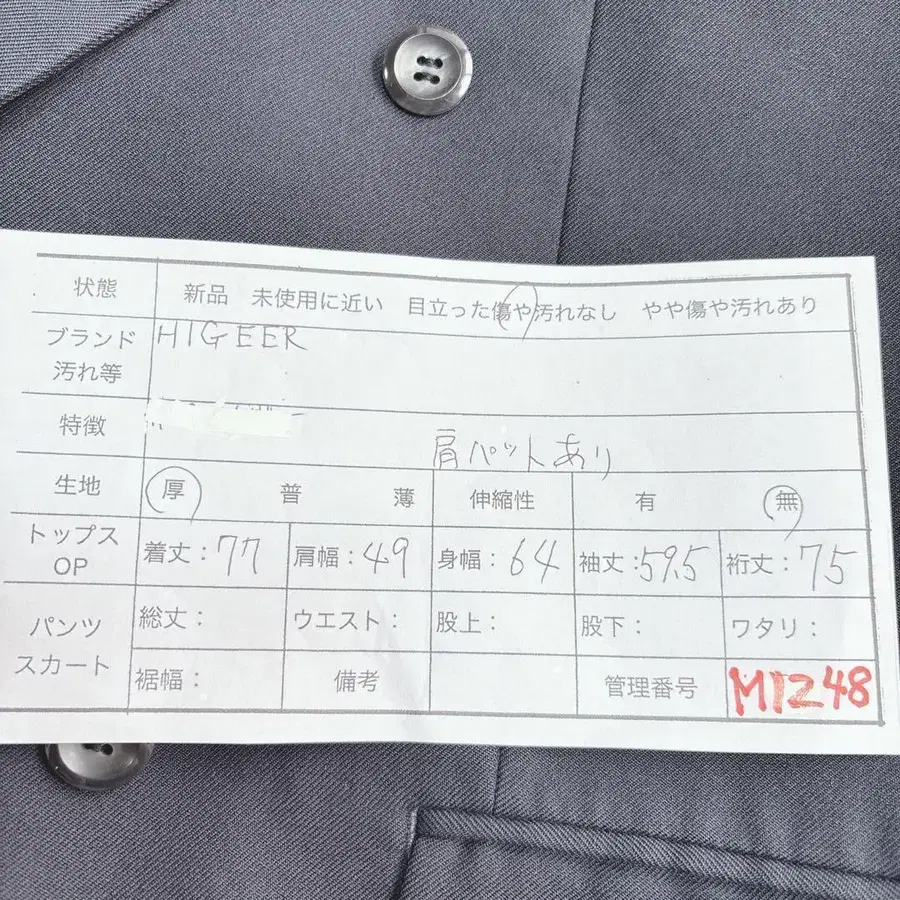 状態 新品 未使用に近い 目立った傷や汚れなし やや傷や汚れあり
ブランド HIGEER
汚れ等
特徴 肩パットあり
生地 厚 普 薄 伸縮性 有 無
トップス
OP 着丈：77 肩幅：49 身幅：64 袖丈：59.5 裄丈：75
パンツ
スカート
総丈： ウエスト： 股上： 股下： ワタリ：
裾幅： 備考 管理番号 M1248